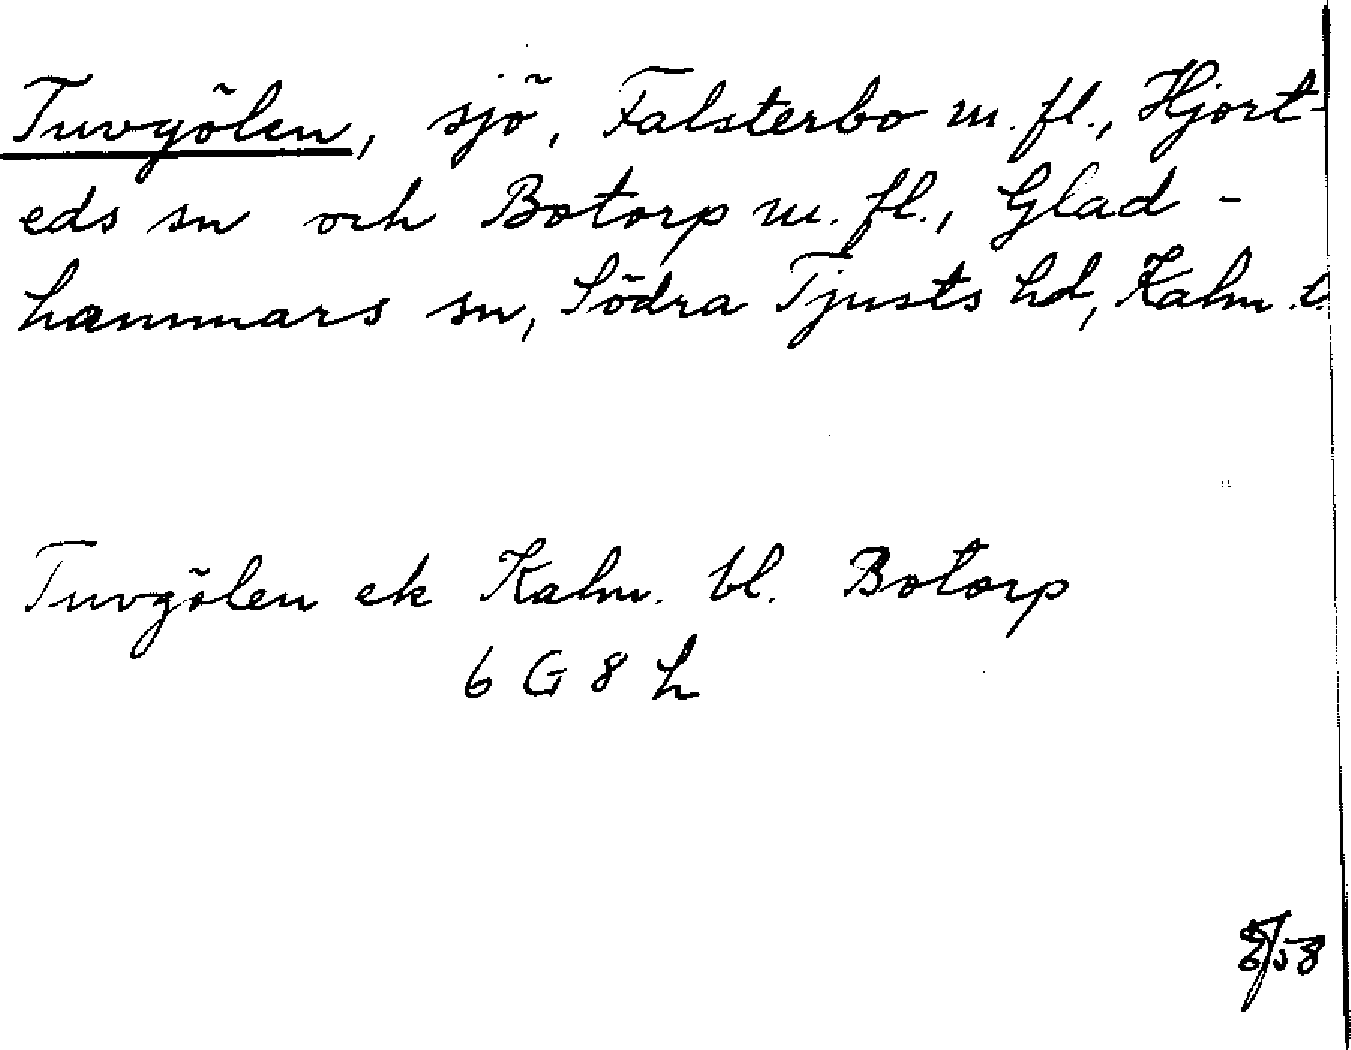 Tuvgölen, sjö, Falsterbo m. fl., Hjort-
eds sn och Botorp m. fl., Glad-
hammars sn, Södra Tjusts hd, Kalm. l.
Tuvgölen ek Kalm. bl. Botorp
6 G 8 h